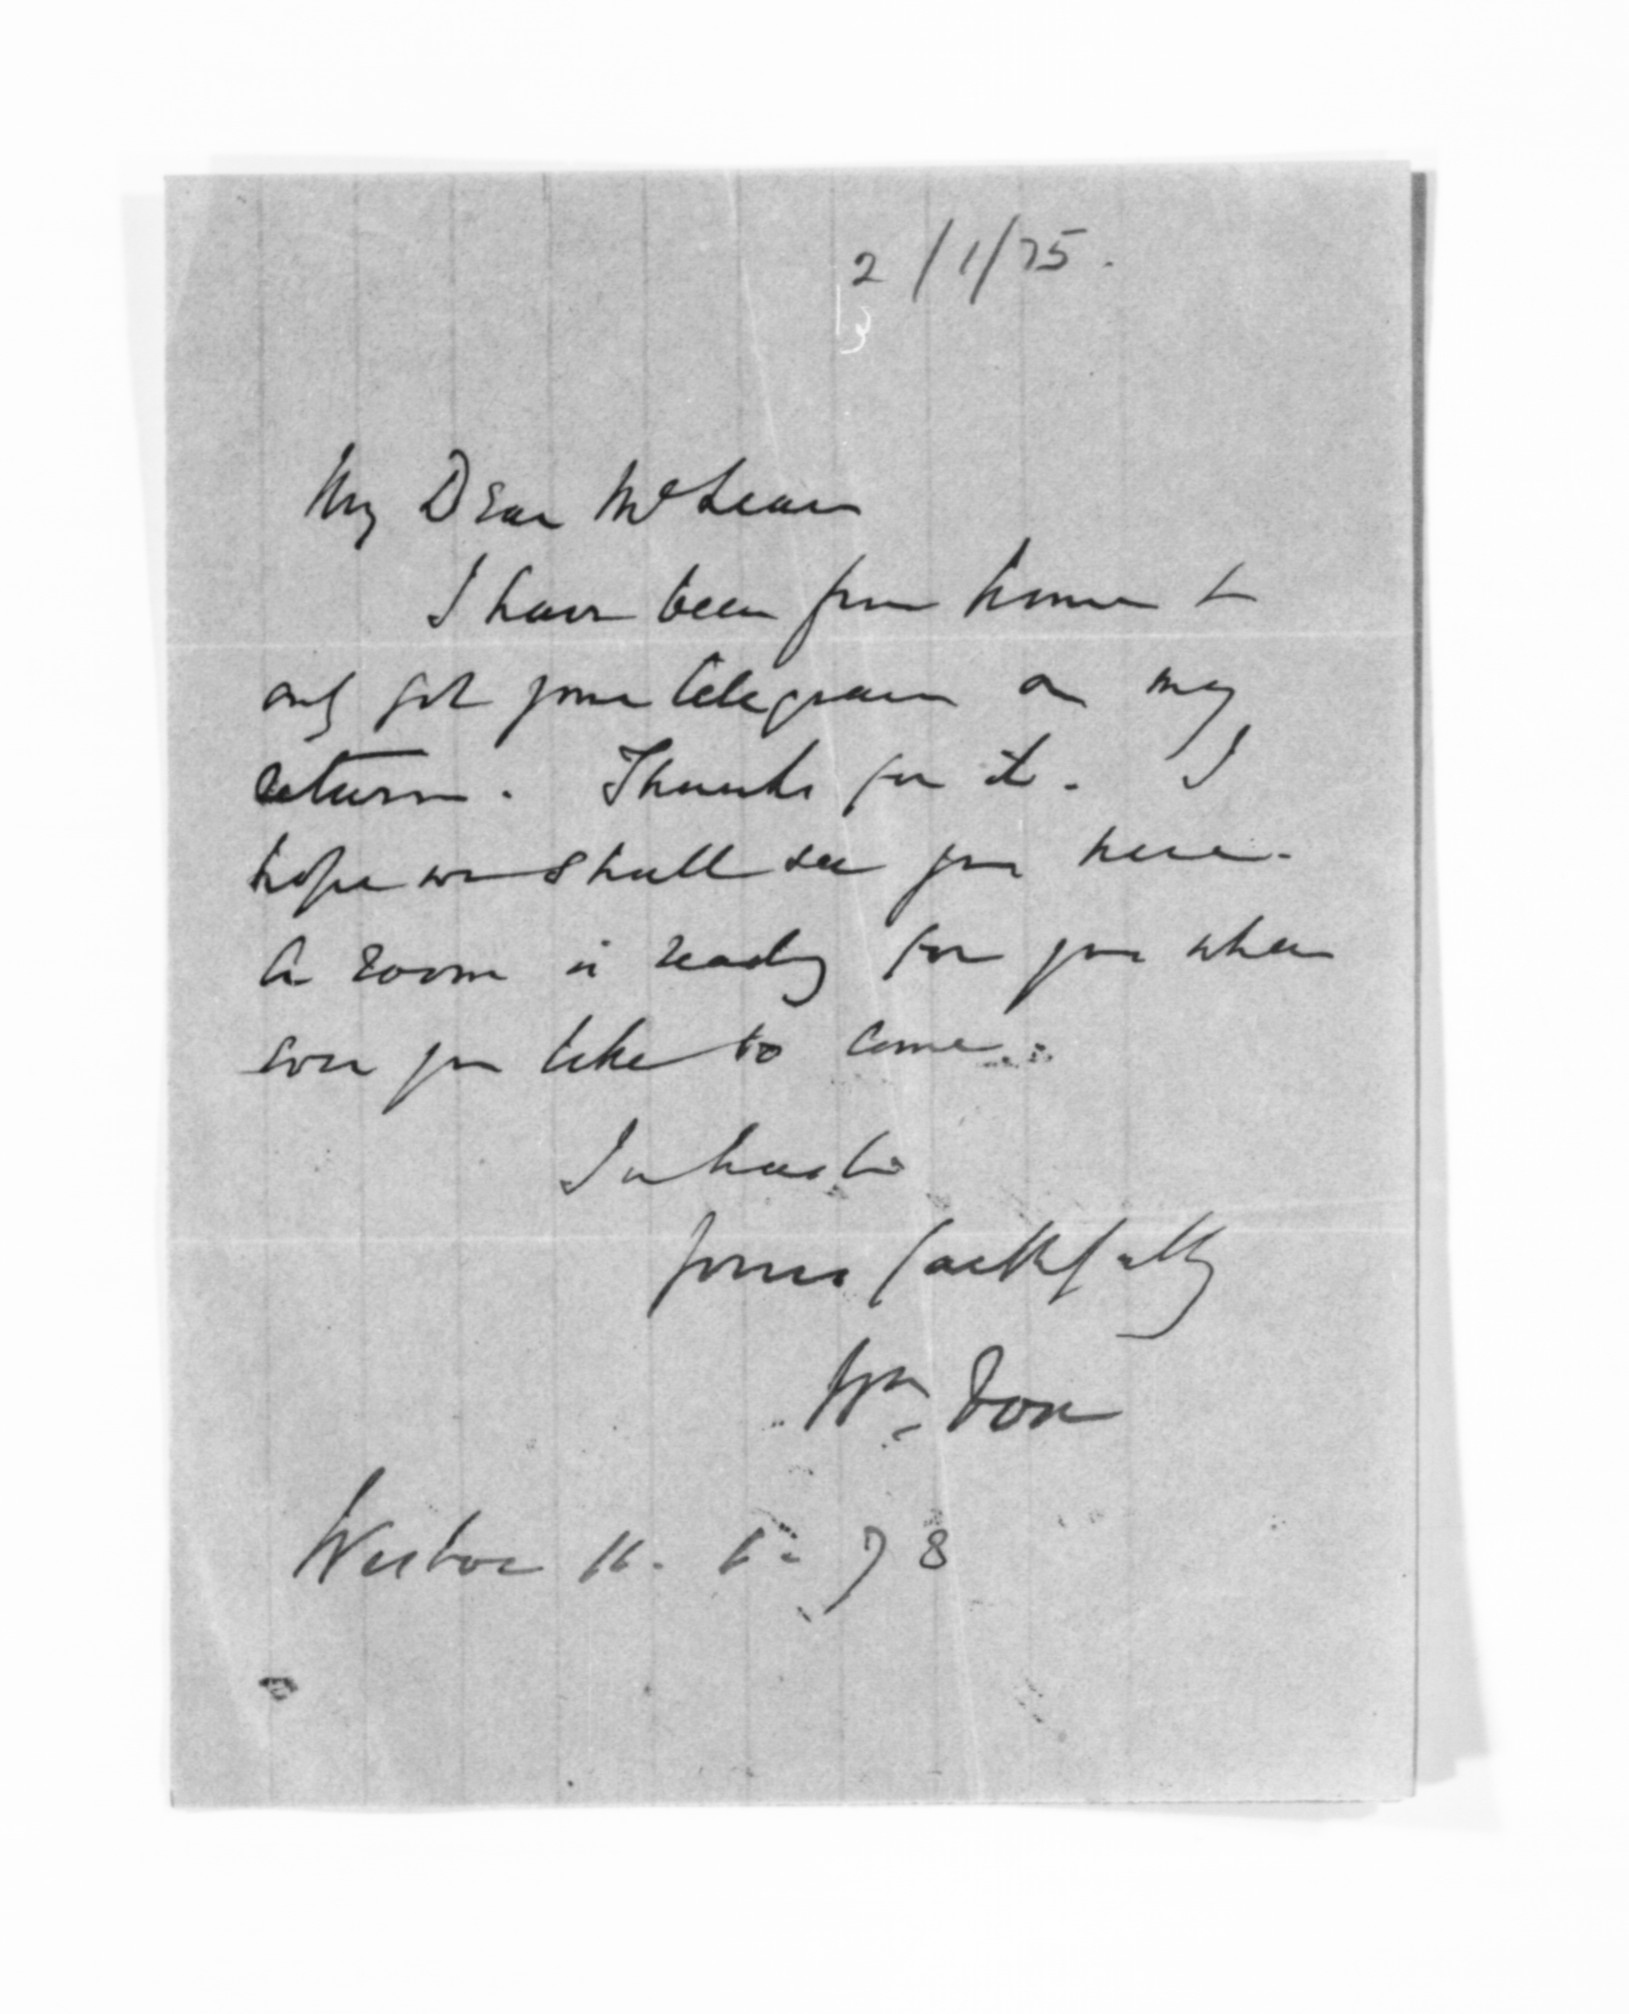 2/1/75.
My Dear McLean
I have been from home &
only got your telegram on my
return. Thanks for it. I
hope we shall see you here.
A room is ready for you when
ever you like to come.
In haste
Yours faithfully
Wm
78